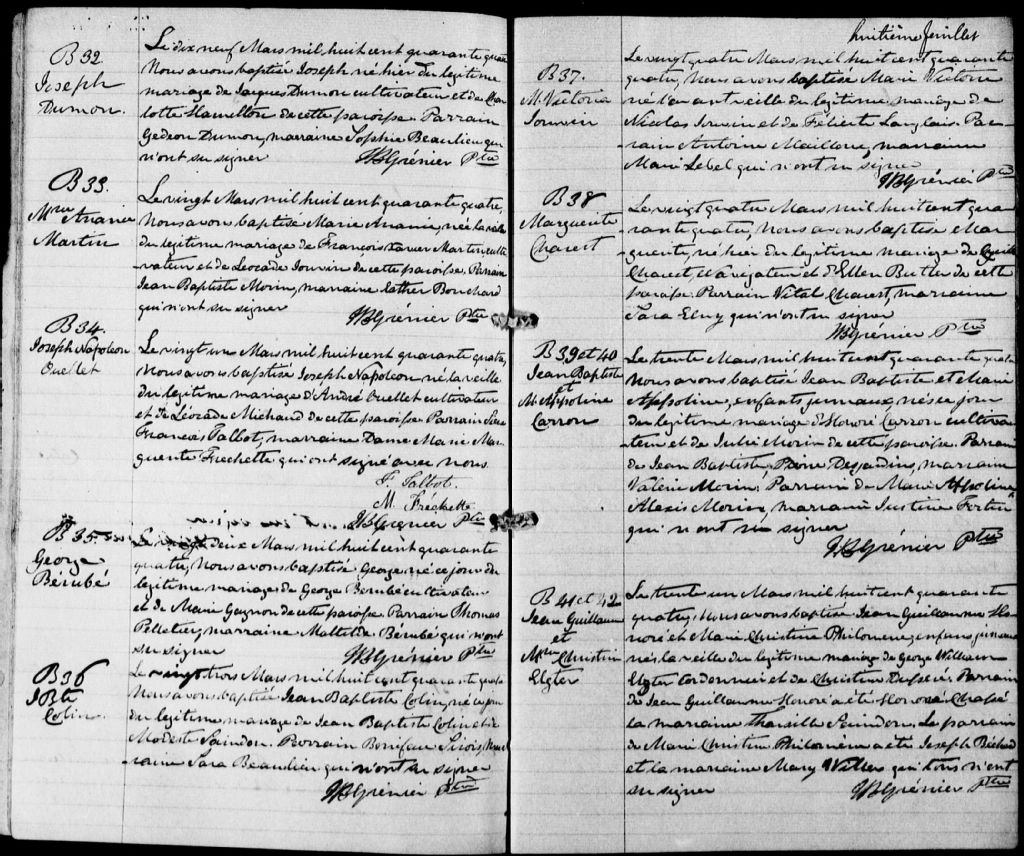 B 32
Joseph
Dumon.
Le dix neuf Mars mil huit cent quarante quatre
Nous avons baptisé Joseph, né hier du légitime
mariage de Jacques Dumon cultivateur et de Char
lotte Hamilton de cette paroisse. Parrain
Gedeon Dumon, marraine Sophie Beaulieu qui
n'ont su signer JBGrénier Ptre
B 33.
Mrie Ananie
Martin
Le vingt Mars mil huit cent quarante quatre,
Nous avons baptisé Marie Ananie, née la veille
du légitime mariage de François Xavier Martin culti
-vateur et de Léocade Jouvin de cette paroisse. Parrain
Jean Baptiste Morin, marraine Esther Bouchard
qui n'ont su signer JBGrénier Ptre
B 34.
Joseph Napoléon
Ouellet
Le vingt un Mars mil huit cent quarante quatre,
Nous avons baptisé Joseph Napoléon, né la veille
du légitime mariage d'André Ouellet cultivateur
et de Léocade Michaud de cette paroisse Parrain Sieur
François Talbot, marraine Dame Marie Mar
guerite Frechette qui ont signé avec nous
F. Talbot.
M. Fréchette
JBGrénier Ptre
B 35.
George
Bérubé
Le vingt deux Mars mil huit cent quarante
quatre, Nous avons baptisé George né ce jour du
légitime mariage de George Bérubé cultivateur
et de Marie Gagnon de cette paroisse Parrain Thomas
Pelletier, marraine Mathilde Bérubé qui n'ont
su signer JBGrénier Ptre
B 36
J Bte
Colin.
Le vingt trois Mars mil huit cent quarante quatre
Nous avons baptisé Jean Baptiste Colin, né ce jour
du légitime mariage de Jean Baptiste Colin et de
Modeste Saindon. Parrain Boniface Sirois, Mar
raine Sara Beaulieu qui n'ont su signer
JBGrénier Ptre
huitième feuillet
B 37.
M. Victoria
Jouvin
Le vingt quatre Mars mil huit cent quarante
quatre, Nous avons baptisé Marie Victoire
née l'avant veille du légitime mariage de
Nicolas Jouvin et de Félicité Langlais. Par
rain Antoine Mailloux, marraine
Marie Lebel qui n'ont su signer
JBGrénier Ptre
B 38
Marguerite
Chouest
Le vingt quatre Mars mil huit cent qua
-rante quatre, Nous avons baptisé Mar
-guerite, née hier du légitime mariage de
Chouest, et d'Ellen Butler de cette
paroisse. Parrain Vital Chouest, marraine
Sara qui n'ont su signer
JBGrénier Ptre
B 39 et 40
Jean Baptiste
et
M. Appoline
Carron
Le trente Mars mil huit cent quarante quatre
Nous avons baptisé Jean Baptiste et Marie
Appoline, enfants jumeaux, nés ce jour
du légitime mariage d'Honoré Carron cultiva
-teur et de Julie Morin de cette paroisse. Parrain
de Jean Baptiste, Pierre Desjardin, marraine
Valérie Morin; Parrain de Marie Appoline
Alexis Morin, marraine Justine Fortin
qui n'ont su signer
JBGrénier Ptre
B 41 et 42
Jean Guillaume
et
Mrie Christine
Elgter
Le trente un Mars mil huit cent quarante
quatre, Nous avons baptisé Jean Guillaume Ho
noré et Marie Christine Philomène, enfans jumeaux
nés la veille du légitime mariage de George William
Elgter cordonnier et de Christine. Parrain
de Jean Guillaume Honoré a été Honoré Chassé
la marraine Tharsille Saindon. Le parrain
de Marie Christine Philomène a été Joseph Béchard
et la marraine Mary qui tous n'ont
su signer JBGrénier Ptre